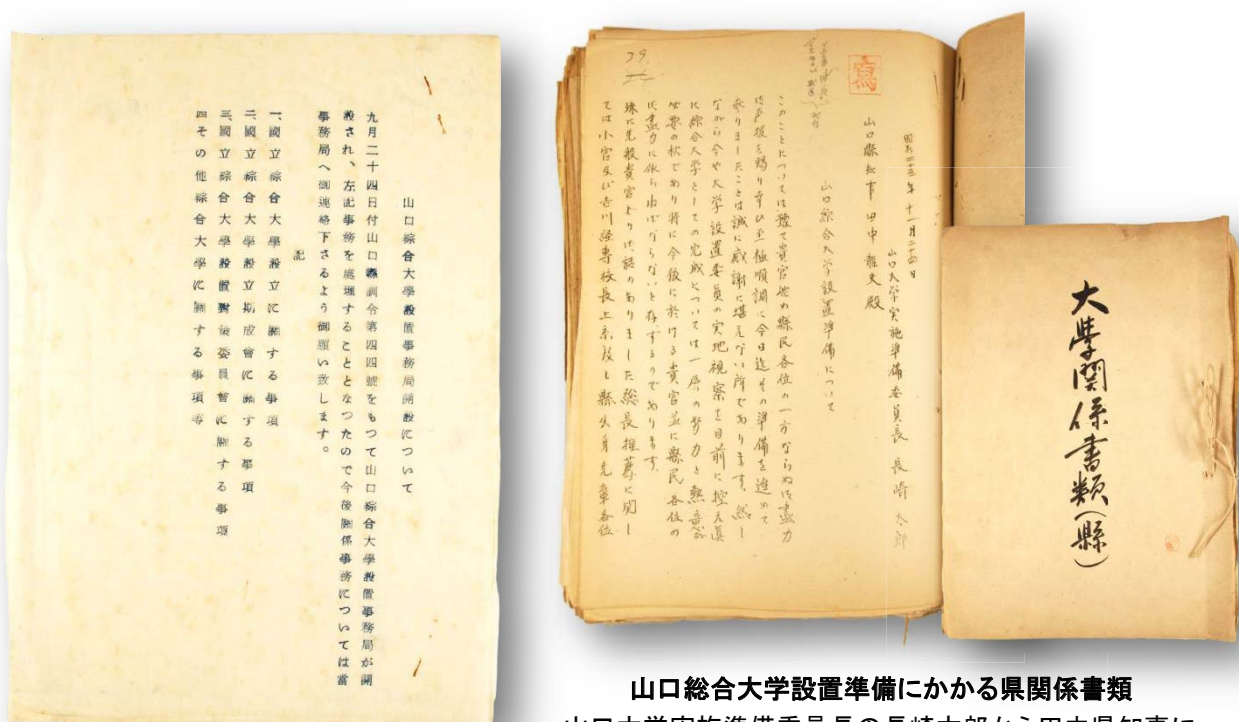 山口綜合大學設置事務局開設について
九月二十四日付山口縣訓令第四四號をもつて山口綜合大學設置事務局が開
設され、左記事務を處理することとなつたので今後關係事務については當
事務局へ御連絡下さるよう御願い致します。
記
一、國立綜合大學設立に關する事項
二、國立綜合大學設立期成會に關する事項
三、國立綜合大學設置對策委員會に關する事項
四その他綜合大學に關する事項等
寫
79
昭和二十三年十一月二十四日
山口大学実施準備委員長 長崎太郎
山口縣知事 田中龍夫殿
山口綜合大学設置準備について
このことについては豫て貴官他め縣民各位の一方ならぬ御盡力
御声援を賜り幸ひ至極順調に今日迄その準備を進めて
参りましたことは誠に感謝に堪えない所であります。然し
ながら今や大学設置委員の実地視察を目前に控え眞
に綜合大学としての完成については一層の努力と熱意が
必要の秋であり特に今後に於ける貴官並に縣民各位の
御盡力に依らねばならないと存ずるのであります。
殊に先般貴官よりお話のありました総長推薦に関し
ては小宮及び吉川経専校長上京致し縣出身先輩各位
大學関係書類(縣)
山口総合大学設置準備にかかる県関係書類
山口大学実施準備委員長の長崎太郎から田中県知事に